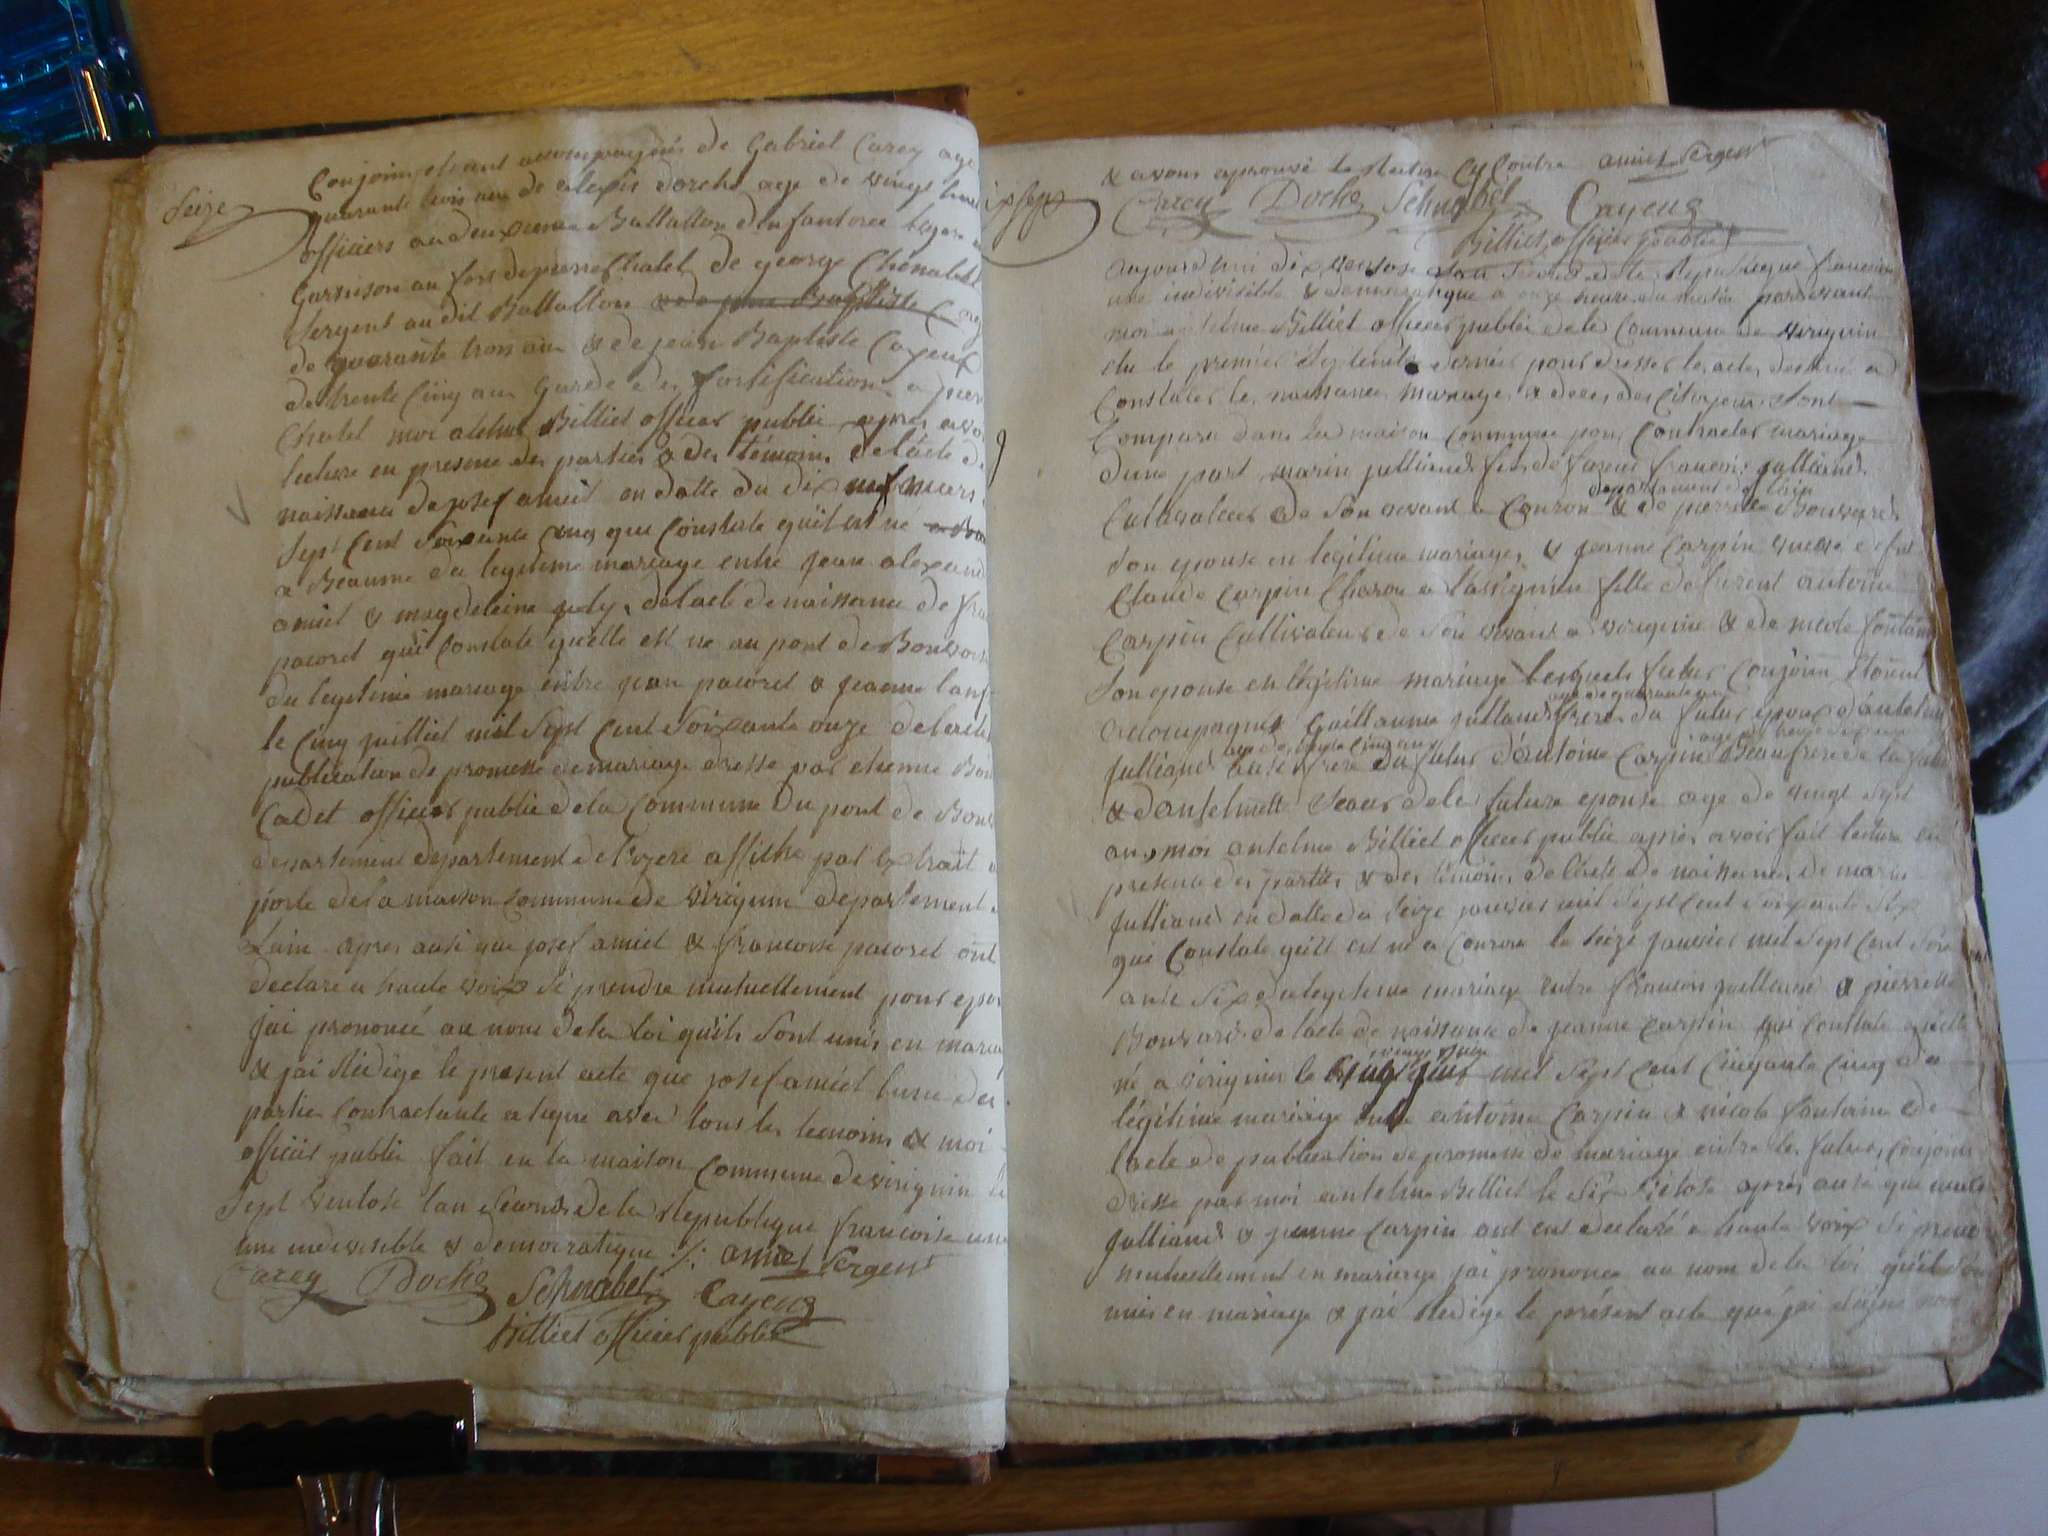 Seize
Conjoins etant accompagnés de Gabriel Carey age
quarante trois ans de alexis dorche age de vingt
officiers au deuxieme Battallon dinfanterie legere
Garnison au fort de pierre Chatel de george Chenabel
Sergent au dit Battallon
de quarante trois ans & de jean Baptiste Cayeux
de trente Cinq ans Garde des fortifications a pier
Chatel moi antelme Billiet officier public apres avoi
lecture en presence des parties & des témoins de lacte de
naissance de josef amiet en datte du dix neuf mars
Sept Cent Soixante Cinq qui Constate quil est né
a Beaume du legitime mariage entre jean alexand
amiet & magdeleine joly, de lacte de naissance de fra
pacoret qui Constate quelle est ne au pont de Bonvoisi
du legitime mariage entre jean pacoret & jeanne
le Cinq juilliet mil Sept Cent Soixante onze de lacte
publication de promesse de mariage dressé par etienne
Cadet officier public de la Commune du pont de Bonv
departement departement de lizere affiche par Extrait a
porte de la maison Commune de virignin departement
Lain apres ausi que josef amiet & francoise pacoret ont
declare a haute voix se prendre mutuellement pour epou
jai prononcé au nom de la loi quils Sont unis en maria
& jai Redige le present acte que josef amiet lune des
parties Contractante a signe avec tous les temoins & moi
officier public fait en la maison Commune de virignin le
Sept ventose lan Second de la Republique francoise une
une indivisible & democratique ./. amiet Sergent
Carey Doche Schnabel Cayeux
Billiet officier public
& avons aprouvé la Rature Cy Contre amiet Sergent
Carey Doche Schnabel Cayeux
Billiet officier public
aujourdhui dix ventose lan Second de la Republique francoise
une indivisible & democratique a onze heure du matin pardevant
moi antelme Billiet officier public de la Commune de virignin
elu le premier dernier pour dresser les actes destinés a
Constater les naissances mariage & deces des Citoyens Sont
Comparu dans la maison Commune pour Contracter mariage
dune part marin julliand fils de francois julliand
departement de lain
Cultivateur de Son vivant a Conzon & de pierrette Bouvard
Son epouse en legitime mariage, & jeanne Carpin veuve de
Claude Carpin fille de antoine
Carpin Cultivateur de Son vivant a virignin & de nicole fontaine
Son epouse en légitime mariage lesquels futur Conjoins etoient
age de quarante
accompagnes Guillaume julliand frere du futur epoux dantelme
age de trente Cinq ans
julliand ausi frere du futur dantoine Carpin Beaufrere de la
& dantelmette Soeur de la future epouse age de vingt Sept
ans, moi antelme Billiet officier public apres avoir fait lecture en
presence des parties & des témoins de lacte de naissance de marin
julliand en datte du Seize janvier mil Sept Cent Soixante Six
qui Constate quil est né a Conzon le Seize janvier mil Sept Cent Soix
ante Six du legitime mariage entre francois julliand & pierrette
Bouvard de lacte de naissance de jeanne Carpin qui Constate quelle
né a virignin le mil Sept Cent Cinquante Cinq du
légitime mariage entre antoine Carpin & nicole fontaine de
lacte de publication de promesse de mariage entre les futurs Conjoins
dressé par moi antelme Billiet le Six ventose apres ausi que
julliand & jeanne Carpin ont eut declaré a haute voix Se prend
mutuellement en mariage jai prononcé au nom de la loi quil Son
unis en mariage & jai Redige le présent acte que jai signe